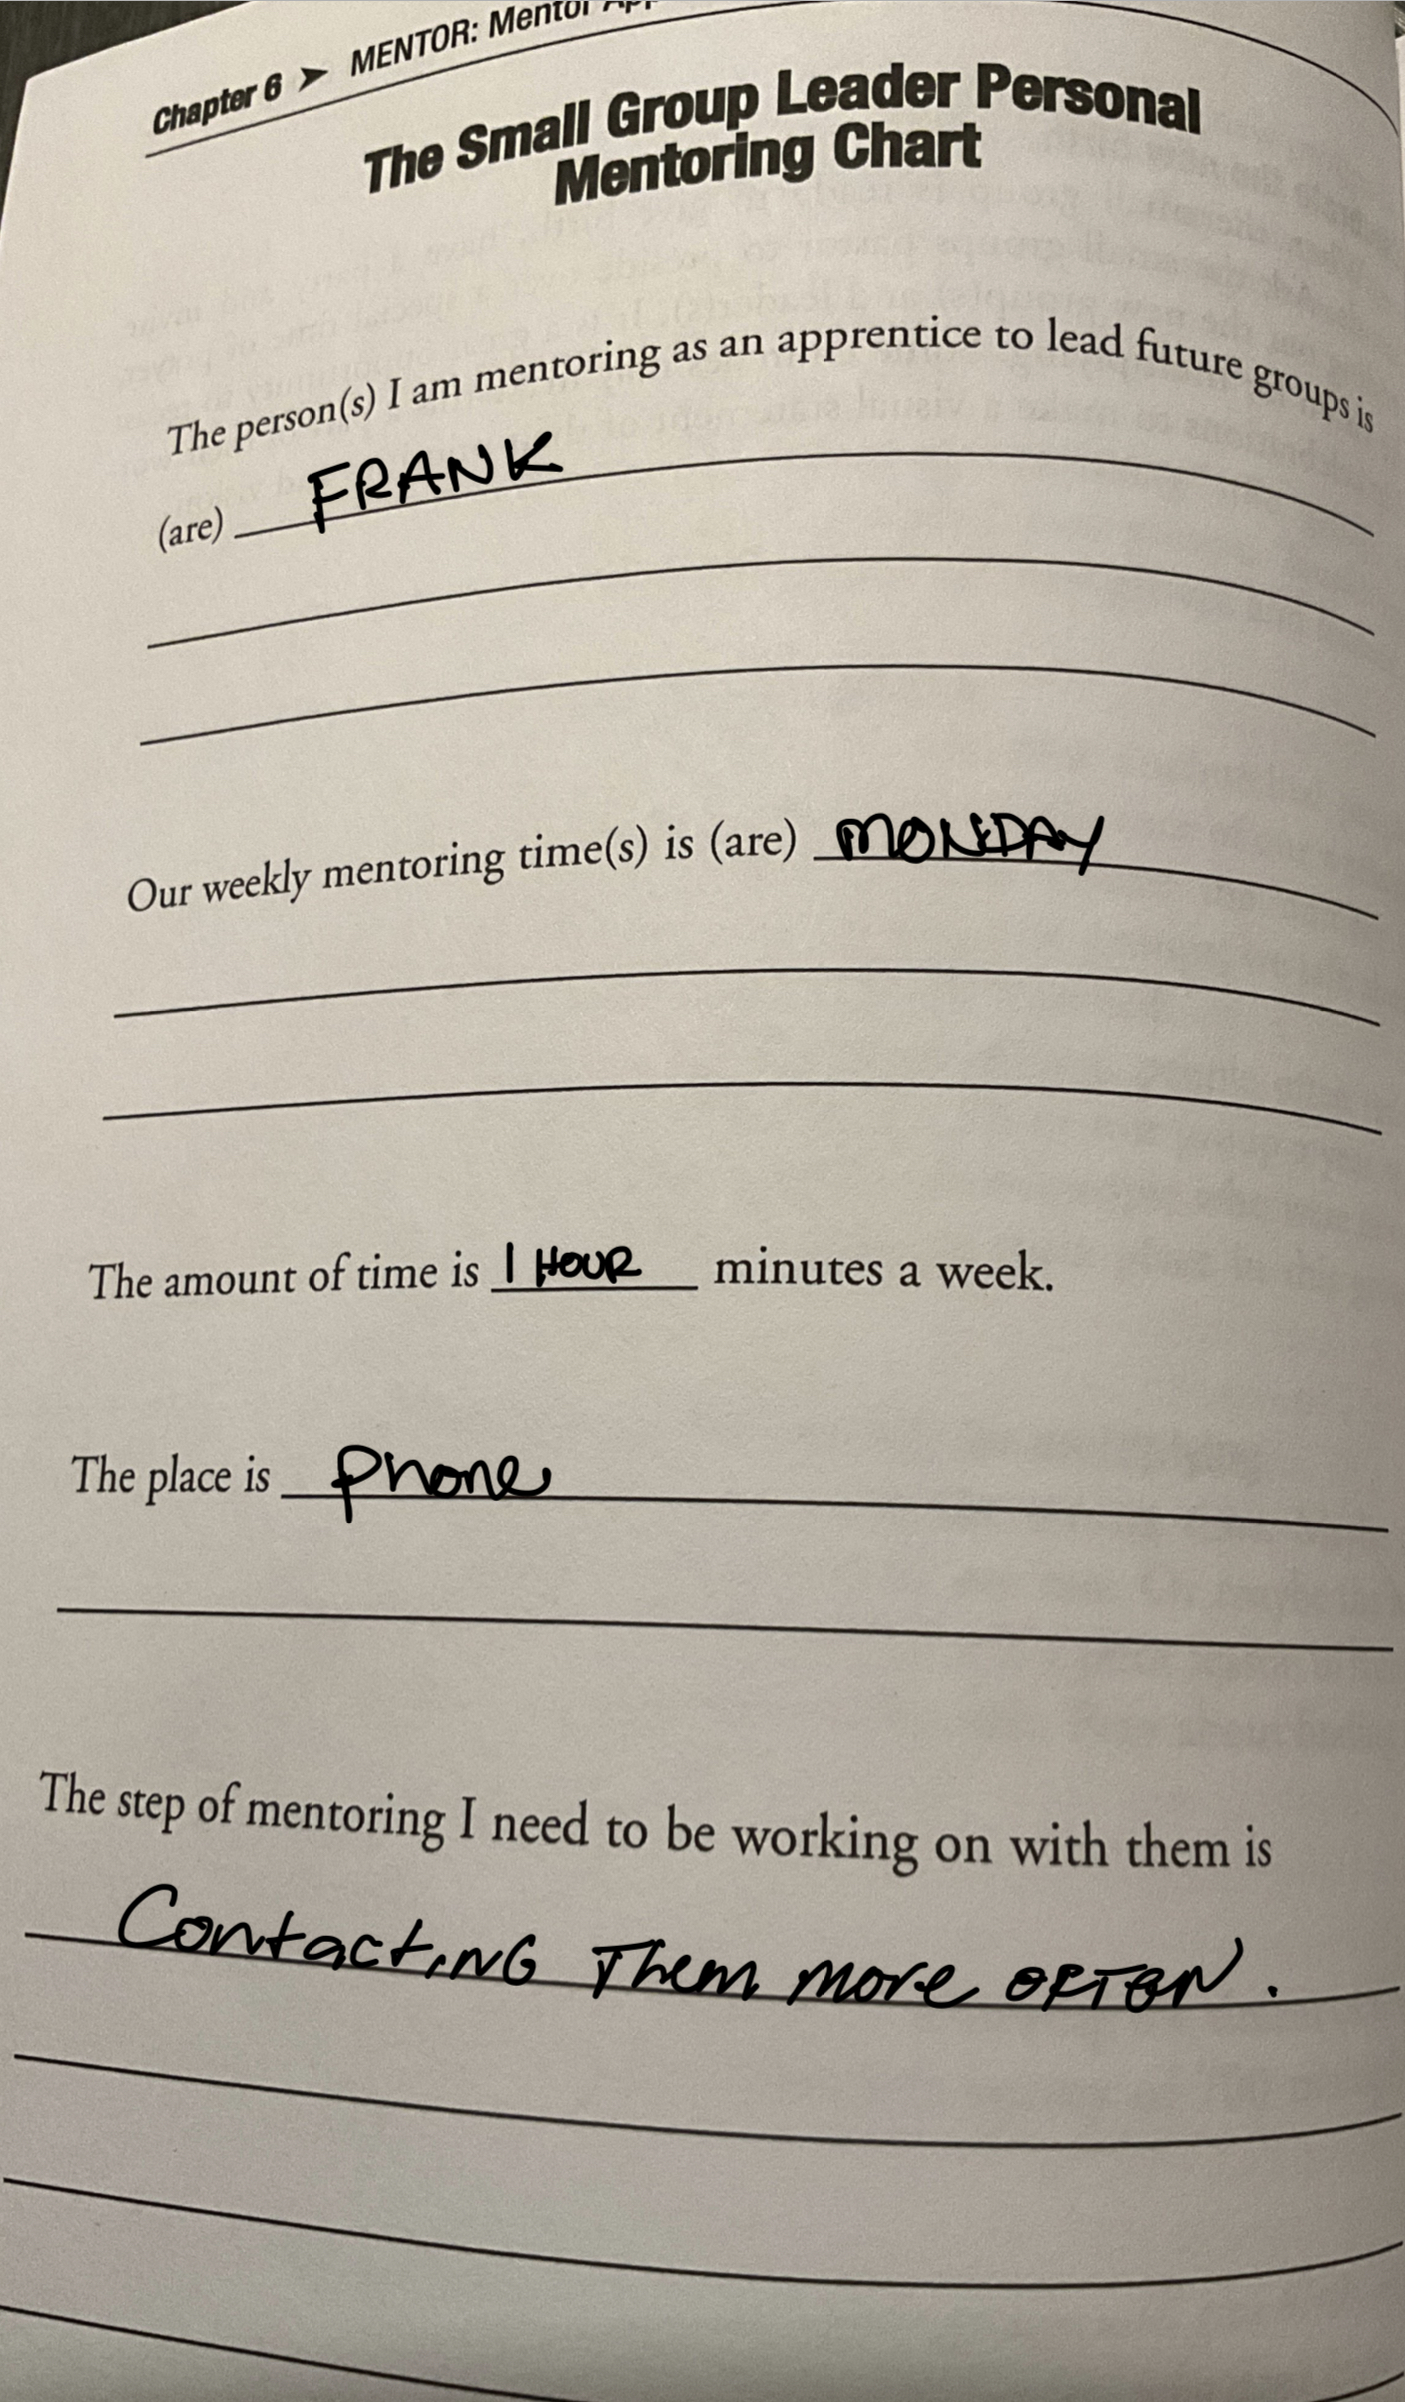 Chapter 6 ➤ MENTOR: Mentor
The Small Group Leader Personal
Mentoring Chart
The person(s) I am mentoring as an apprentice to lead future groups is
(are) FRANK
Our weekly mentoring time(s) is (are) MONDAY
The amount of time is 1 HOUR minutes a week.
The place is Phone
The step of mentoring I need to be working on with them is
Contacting Them more OFTEN.